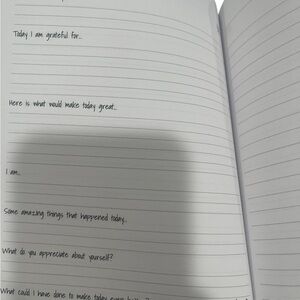 Today I am grateful for...
Here is what would make today great...
I am...
Some amazing things that happened today...
What do you appreciate about yourself?
What could I have done to make today even